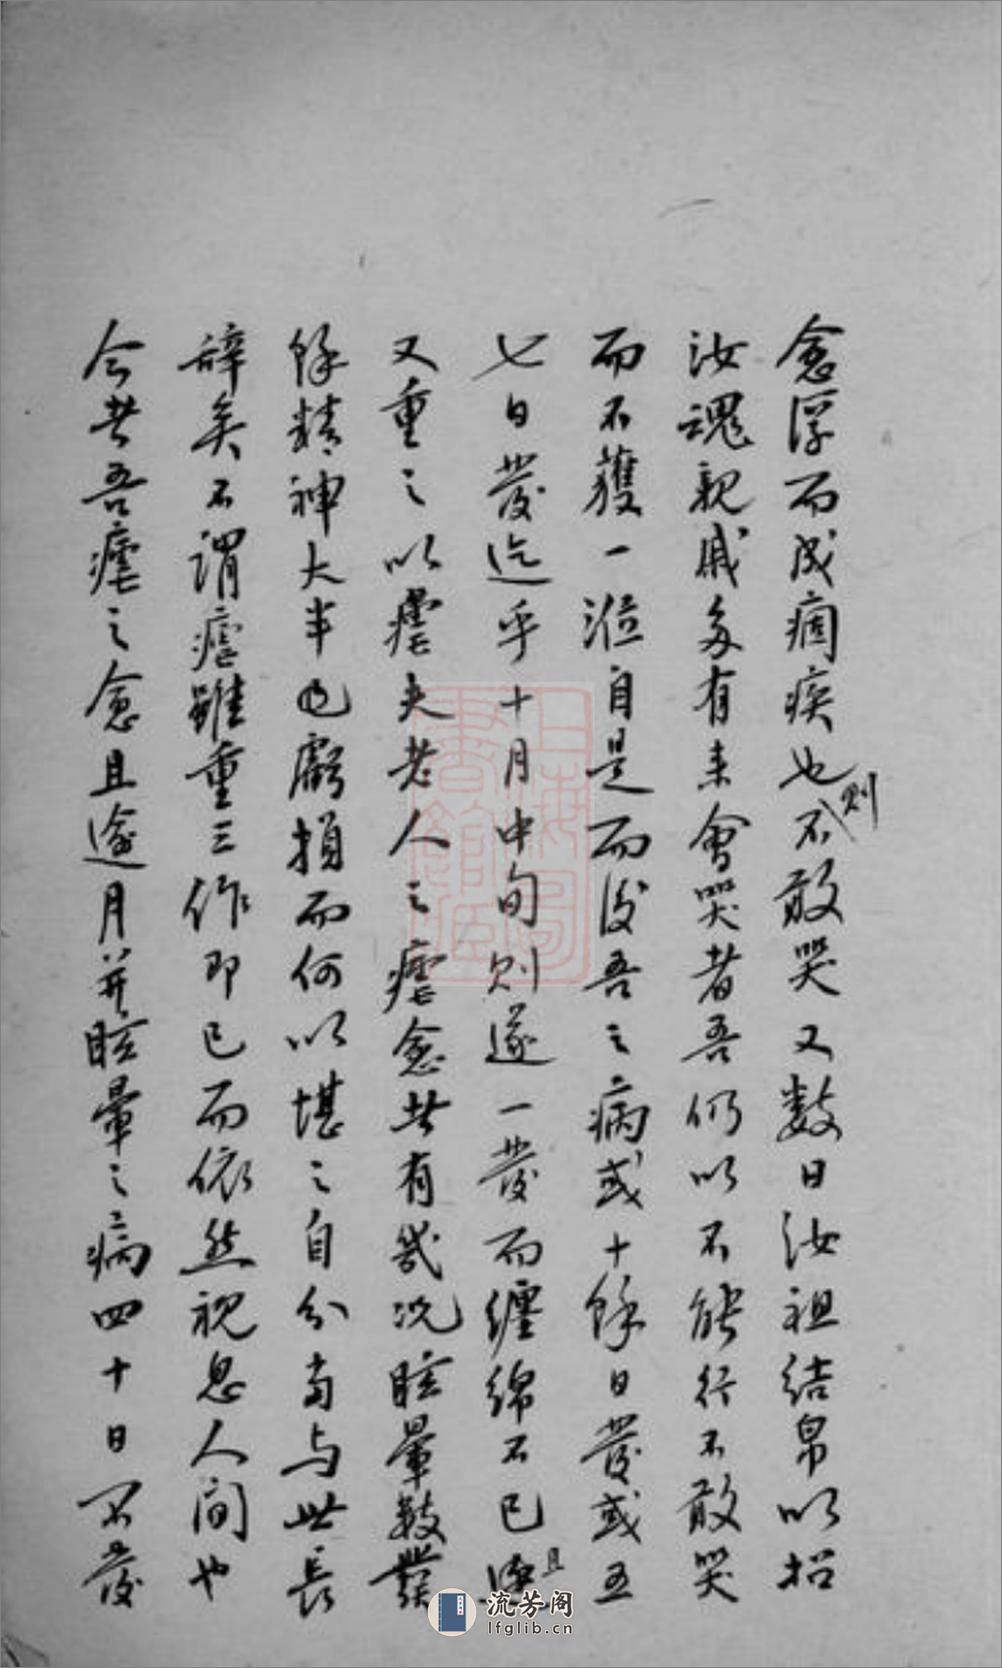 愈深而成痼疾也則不敢哭又數日汝祖結帛以招
汝魂親戚多有来會哭者吾仍以不能行不敢哭
而不獲一涖自是而後吾之病或十餘日發或五
七日發迄乎十月中旬則遂一發而纏綿不已且
又重之以瘧夫老人之瘧愈者有幾况眩暈數發
餘精神大半已虧損而何以堪之自分當与此長
辭矣不謂瘧雖重三作即已而依然視息人間也
今者吾瘧之愈且逾月并眩暈之病四十日不發
上海圖書館藏
流芳阁
lfglib.cn